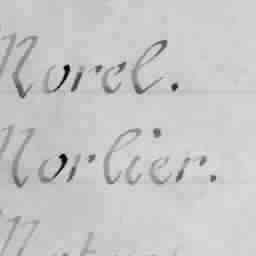 Morel.
Morlier.